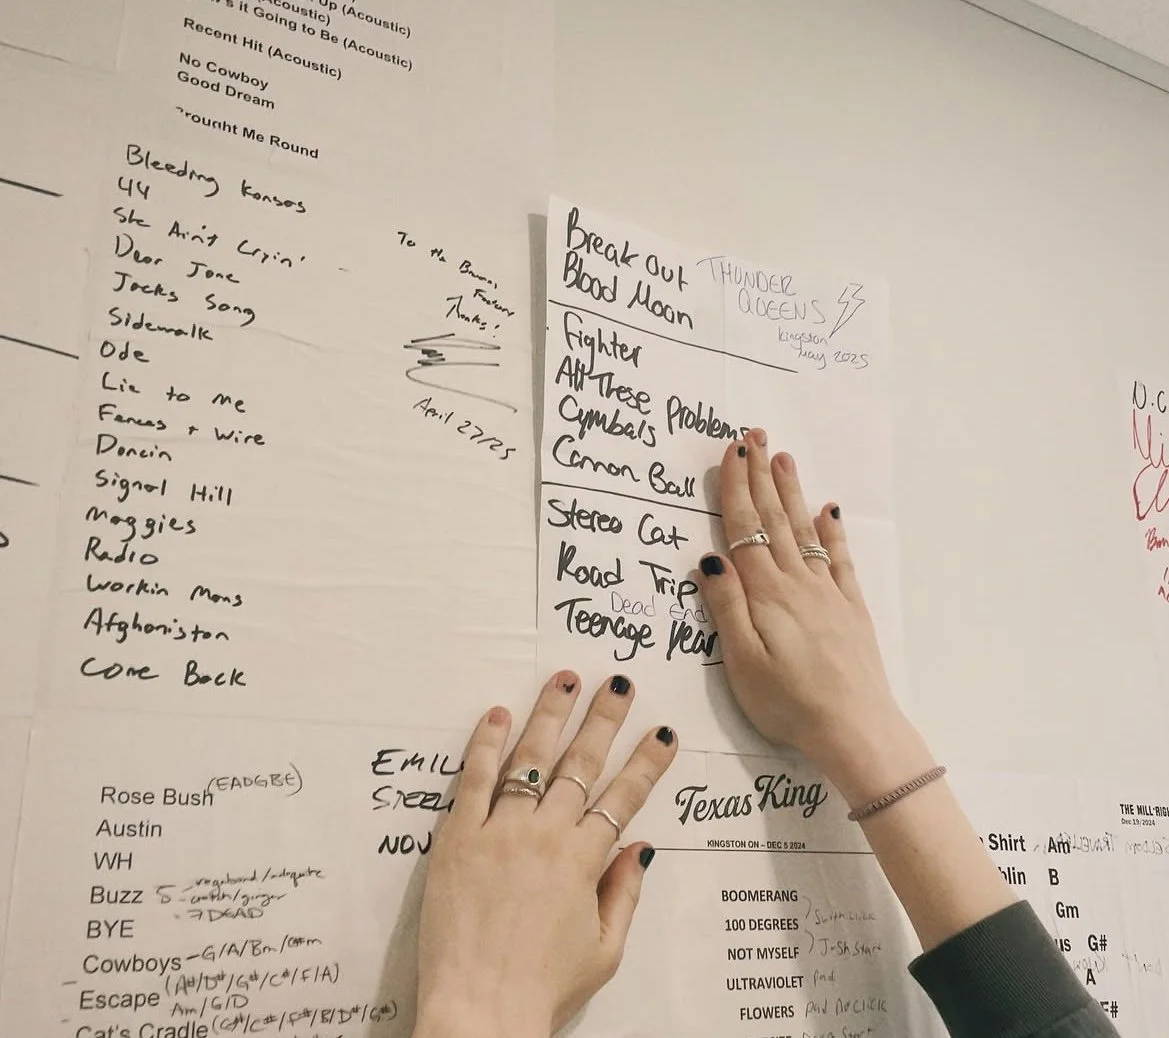 Up (Acoustic)
(Acoustic)
it Going to Be (Acoustic)
Recent Hit (Acoustic)
No Cowboy
Good Dream
Me Round
Bleeding Kansas
44
She Ain't Cryin'
Dear Jane
Jacks Song
Sidewalk
Ode
Lie to me
Fences + Wire
Dancin
Signal Hill
Maggies
Radio
Workin Mans
Afghanistan
Come Back
To the
Thanks!
April 27/25
Break Out
Blood Moon
THUNDER
QUEENS
Kingston
May 2025
Fighter
All These Problems
Cymbals
Cannon Ball
Stereo Cat
Road Trip
Dead End
Teenage Year
Rose Bush (EADGBE)
Austin
WH
Buzz 5
DEAD
BYE
Cowboys - G/A/Bm/
Escape (A#/D#/G#/C#/F/A)
Am/G/D
Cat's Cradle (C#/C#/F#/B/D#/G#)
EMIL
STEEL
NOV
Texas King
KINGSTON ON – DEC 5 2024
BOOMERANG
100 DEGREES
NOT MYSELF
ULTRAVIOLET Pad
FLOWERS Pad No Click
N.C
THE MILL RIG
Dec 19/2024
Shirt Am
lin B
Gm
us G#
A
F#